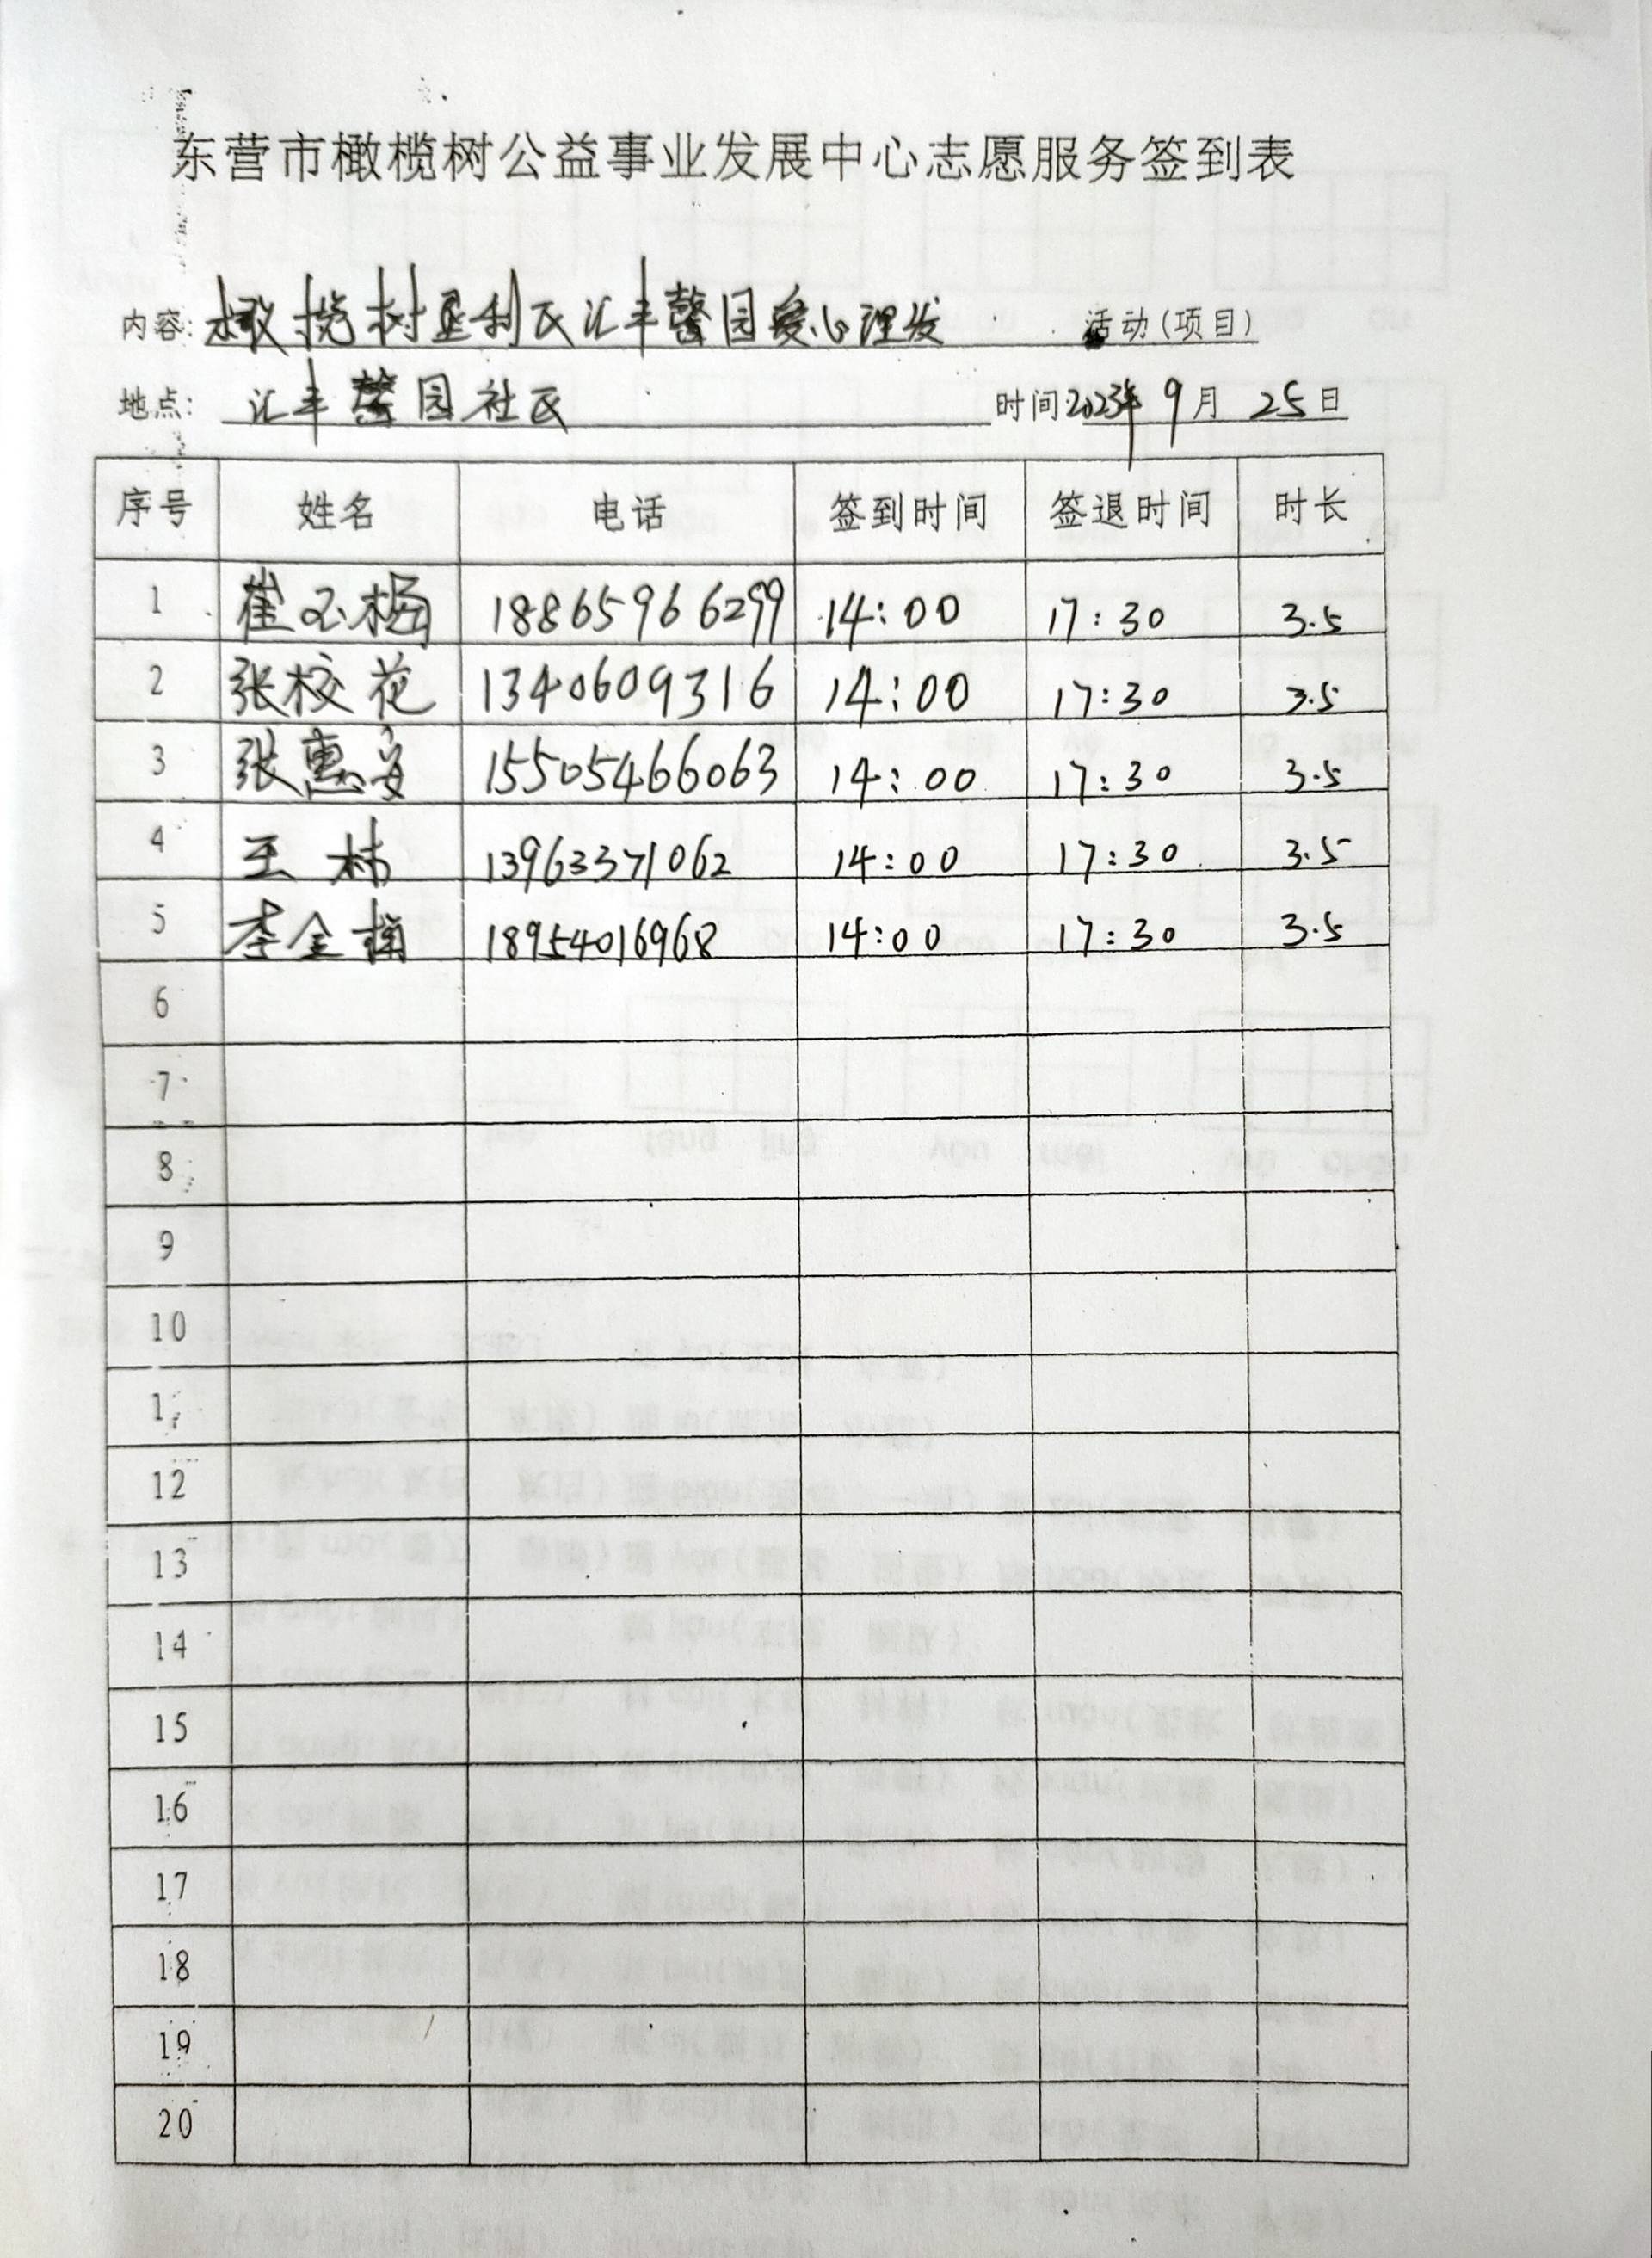 东营市橄榄树公益事业发展中心志愿服务签到表
内容: 橄榄树垦利区汇丰馨园爱心理发 活动(项目)
地点: 汇丰馨园社区 时间2023年9月25日
序号 姓名 电话 签到时间 签退时间 时长
1 崔玉梅 18865966299 14:00 17:30 3.5
2 张校花 1340609316 14:00 17:30 3.5
3 张惠 15505466063 14:00 17:30 3.5
4 王 13963371062 14:00 17:30 3.5
5 李金梅 18954016968 14:00 17:30 3.5
6
7
8
9
10
1
12
13
14
15
16
17
18
19
20